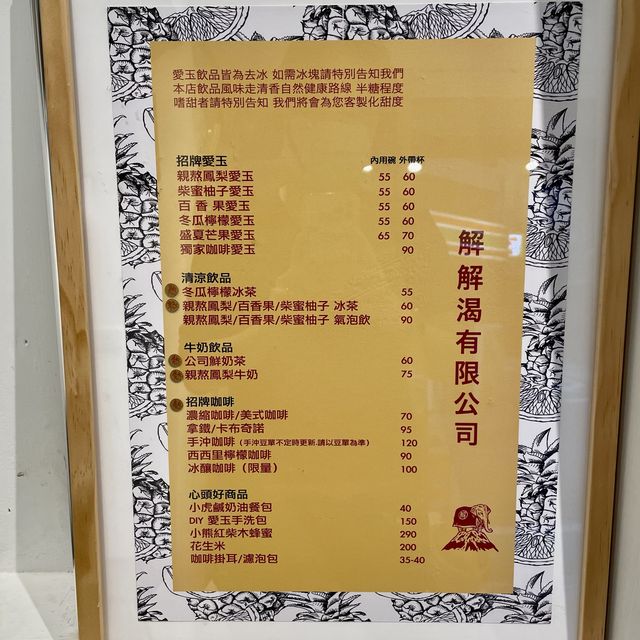 愛玉飲品皆為去冰 如需冰塊請特別告知我們
本店飲品風味走清香自然健康路線 半糖程度
嗜甜者請特別告知 我們將會為您客製化甜度
招牌愛玉 內用碗 外帶杯
親熬鳳梨愛玉 55 60
柴蜜柚子愛玉 55 60
百香果愛玉 55 60
冬瓜檸檬愛玉 55 60
盛夏芒果愛玉 65 70
獨家咖啡愛玉 90
清涼飲品
冬瓜檸檬冰茶 55
親熬鳳梨/百香果/柴蜜柚子 冰茶 60
親熬鳳梨/百香果/柴蜜柚子 氣泡飲 90
牛奶飲品
公司鮮奶茶 60
親熬鳳梨牛奶 75
招牌咖啡
濃縮咖啡/美式咖啡 70
拿鐵/卡布奇諾 95
手沖咖啡（手沖豆單不定時更新.請以豆單為準） 120
西西里檸檬咖啡 90
冰釀咖啡（限量） 100
心頭好商品
小虎鹹奶油餐包 40
DIY 愛玉手洗包 150
小熊紅柴木蜂蜜 290
花生米 200
咖啡掛耳/濾泡包 35-40
解解渴有限公司